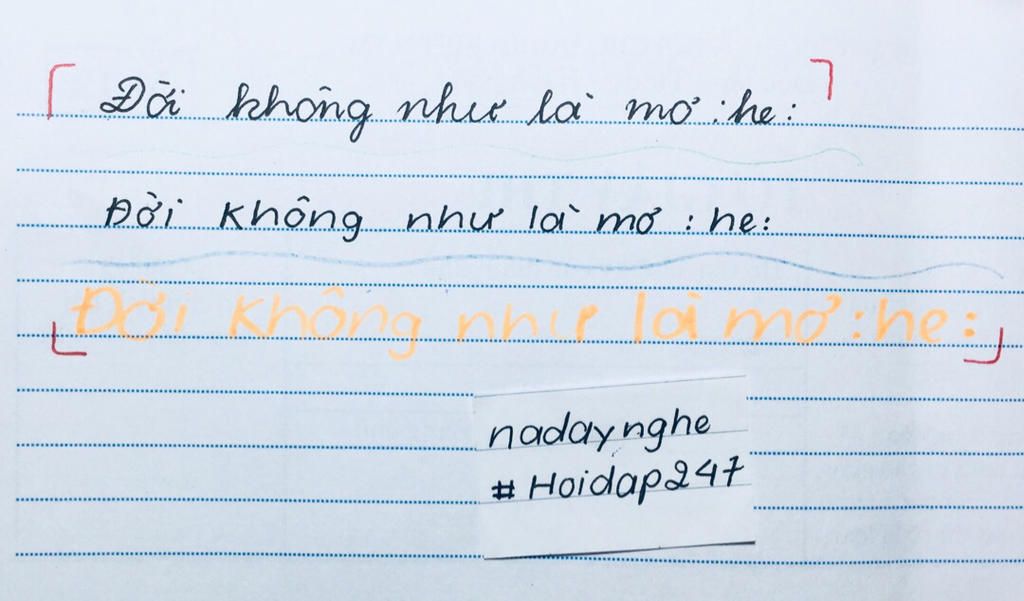 Đời không như là mơ :he:
Đời không như là mơ :he:
Đời không như là mơ :he:
nadaynghe
#Hoidap247